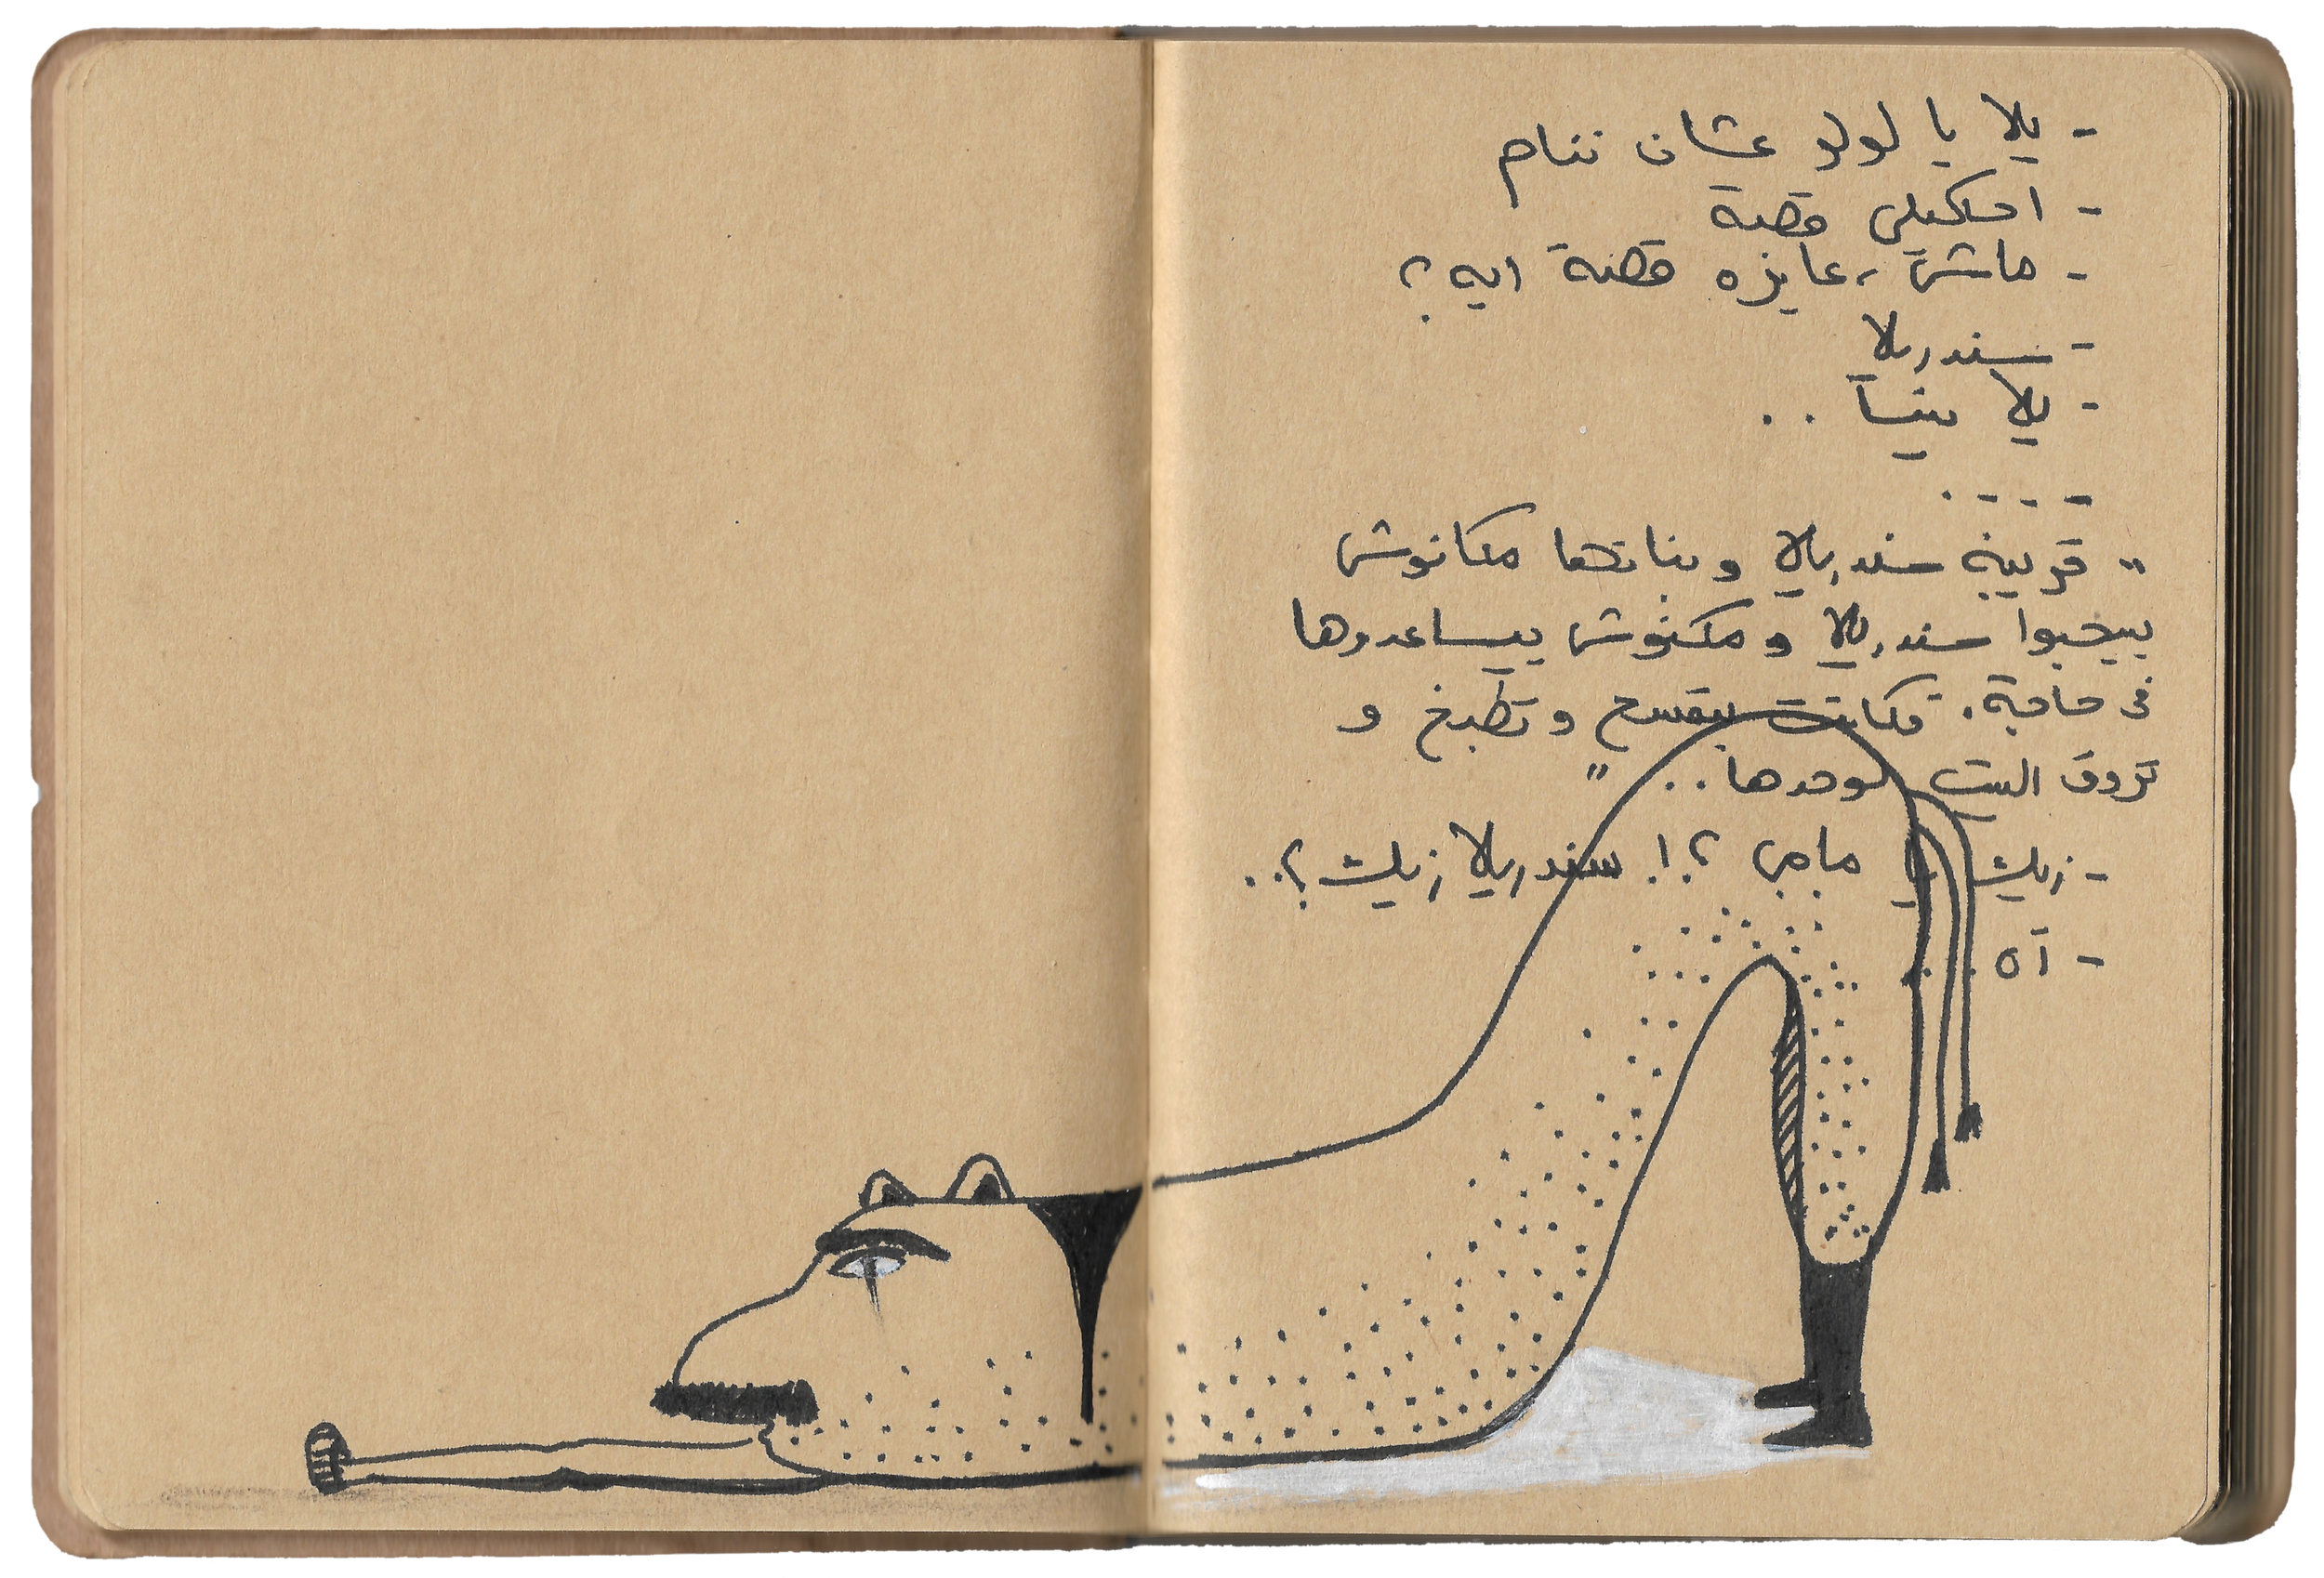 - يلا يا لولو عشان ننام
- احكيلي قصة
- ماشي، عايزه قصة ايه؟
- سندريلا
- يلا بينا ..
- - - - .
" قريبة سندريلا وبناتها مكانوش
بيحبوا سندريلا و مكنوش بيساعدوها
في حاجة. فكانت بتمسح و تطبخ و
تروق البيت لوحدها .. "
- زيك يا مامي ؟! سندريلا زيك ؟..
- آه ...